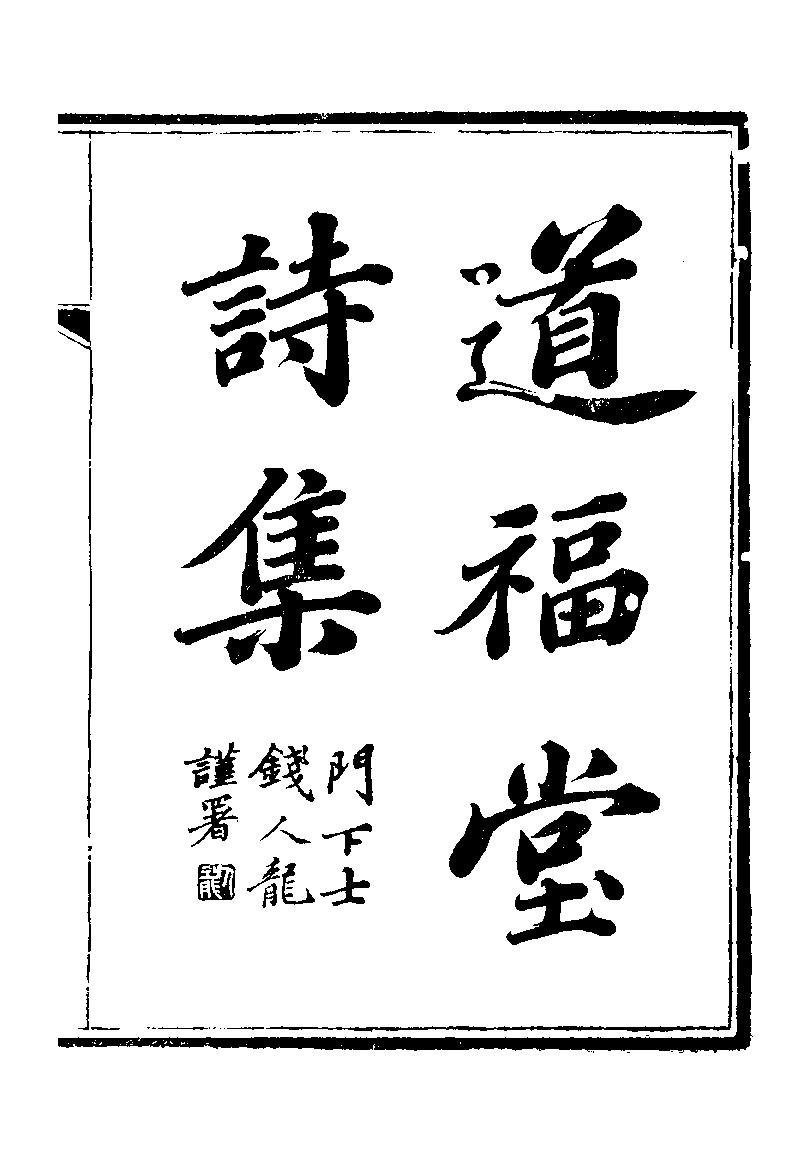 道福堂
詩集
門下士
錢人龍
謹署